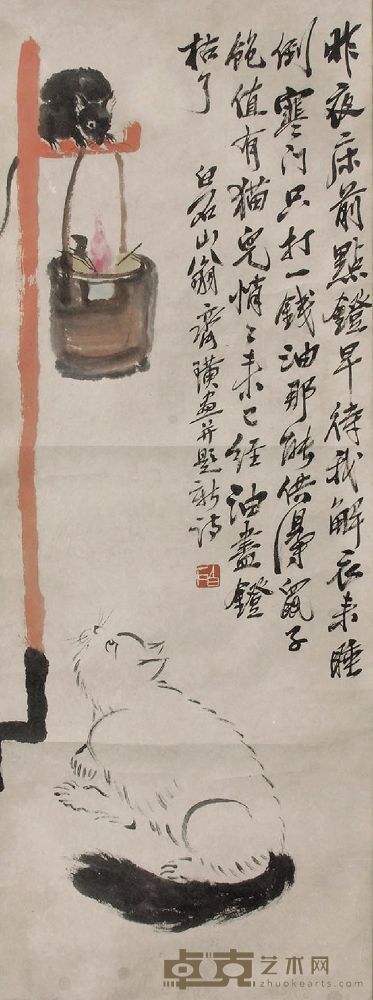 昨夜床前點鐙早待我解衣来睡
倒寒门只打一錢油那能供得鼠子
飽值有猫兒悄〻来已經油盡鐙
枯了
白石山翁齊璜畫并題新詩
卓克艺术网
zhuokearts.com